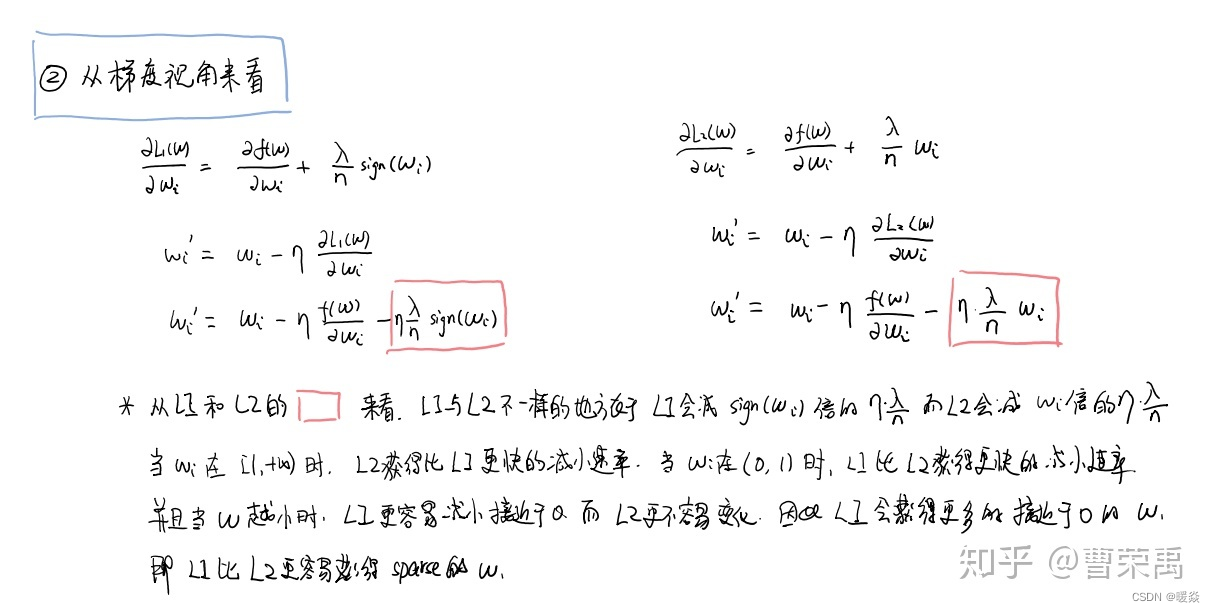 ② 从梯度视角来看
∂L₁(w)/∂wᵢ = ∂f(w)/∂wᵢ + λ/n sign(wᵢ)
wᵢ' = wᵢ - η ∂L₁(w)/∂wᵢ
wᵢ' = wᵢ - η f(w)/∂wᵢ - η λ/n sign(wᵢ)
∂L₂(w)/∂wᵢ = ∂f(w)/∂wᵢ + λ/n wᵢ
wᵢ' = wᵢ - η ∂L₂(w)/∂wᵢ
wᵢ' = wᵢ - η f(w)/∂wᵢ - η·λ/n wᵢ
* 从L1和L2的 来看. L1与L2不一样的地方在于 L1会减 sign(wᵢ) 倍的 η·λ/n 而L2会减 wᵢ倍的η·λ/n
当 wᵢ 在 [1,+∞) 时, L2获得比L1更快的减小速率. 当 wᵢ在(0,1)时, L1比L2获得更快的减小速率.
并且当 w 越小时, L1更容易减小接近于0 而 L2更不容易变化. 因此 L1会获得更多的接近于0的 w,
即 L1比L2更容易获得 sparse的 w.
知乎 @曹荣禹
CSDN @暖焱